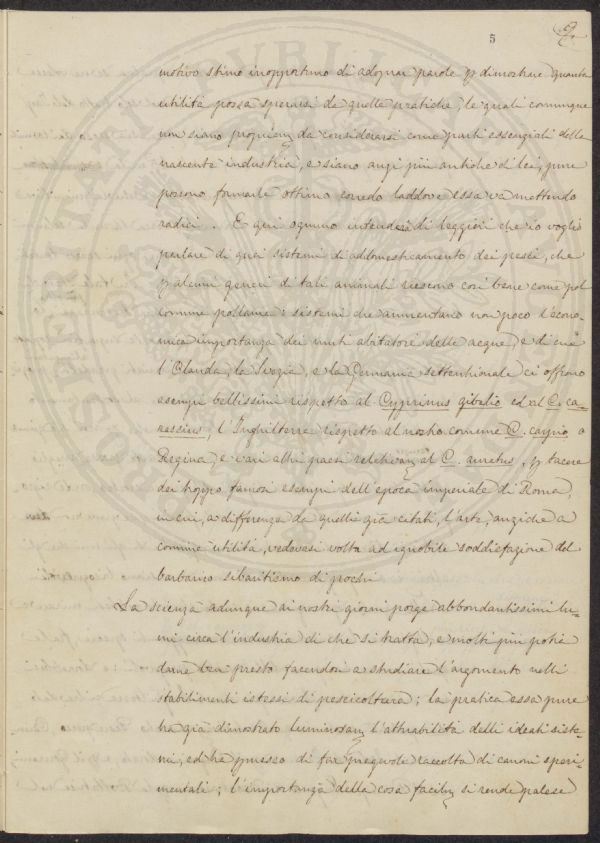 5
motivo stimo inopportuno di adoprar parole p dimostrare quanta
utilità possa sperarsi da quelle pratiche, le quali comunque
non siano propriam da considerarsi come parti essenziali della
nascente industria, e siano anzi più antiche di lei, pure
possono formarle ottimo corredo laddove essa va mettendo
radici. E qui ognuno intenderà di leggieri che io voglio
parlare di quei sistemi di addomesticamento dei pesci, che
p alcuni generi di tali animali riescono così bene come pel
comune pollame: sistemi che aumentano non poco l'econo-
mica importanza dei muti abitatori delle acque, e di cui
l'Olanda, la Svezia, e la Germania settentrionale ci offrono
esempi bellissimi rispetto al Cyprinus gibelio ed al C. ca-
rassius, l'Inghilterra rispetto al nostro comune C. carpio o
Regina, e vari altri paesi relativam al C. auratus, p tacere
dei troppo famosi esempi dell'epoca imperiale di Roma,
in cui, a differenza da quelli già citati, l'arte, anziché a
comune utilità, vedevasi volta ad ignobile soddisfazione del
barbaro sibaritismo di pochi
La scienza adunque ai nostri giorni porge abbondantissimi lu-
mi circa l'industria di che si tratta, e molti più potrà
darne ben presto facendosi a studiare l'argomento nelli
stabilimenti istessi di pescicoltura; la pratica essa pure
ha già dimostrato luminosam l'attuabilità delli ideati siste-
mi, ed ha preso di far pregevole raccolta di canoni speri-
mentali; l'importanza della cosa facilm si rende palese